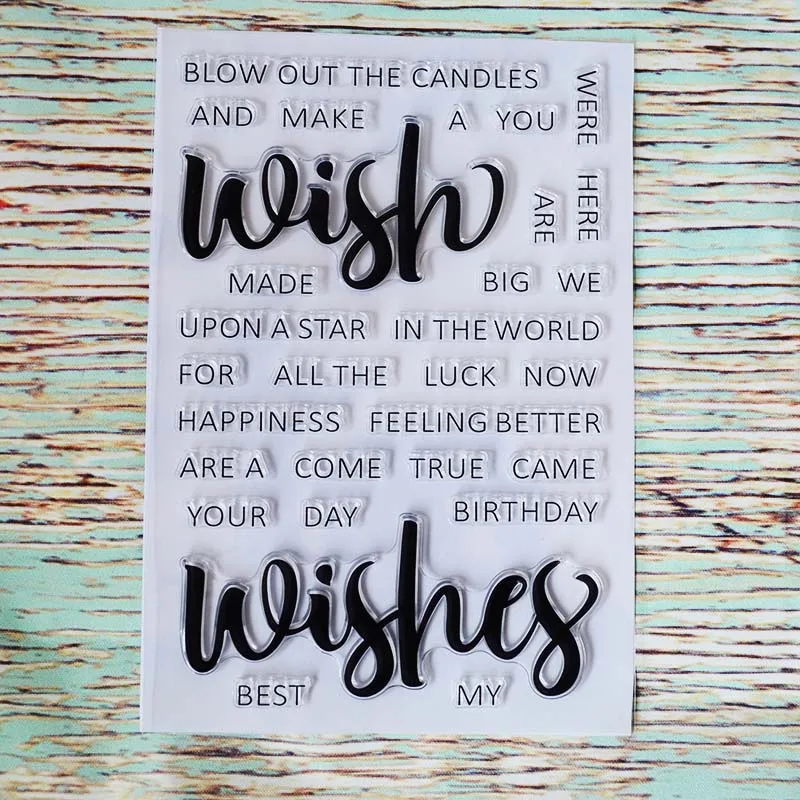 BLOW OUT THE CANDLES
AND MAKE A YOU
WERE
wish
ARE
HERE
MADE BIG WE
UPON A STAR IN THE WORLD
FOR ALL THE LUCK NOW
HAPPINESS FEELING BETTER
ARE A COME TRUE CAME
YOUR DAY BIRTHDAY
wishes
BEST MY